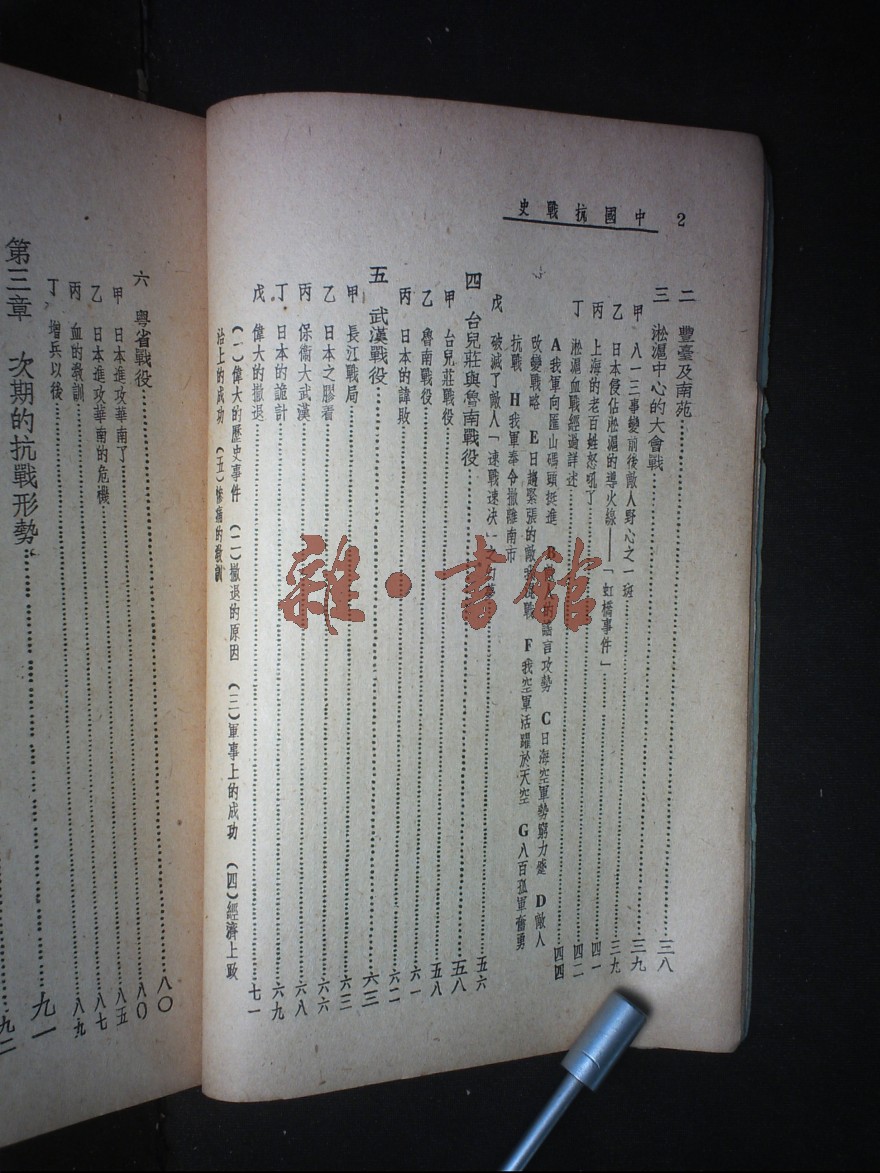 2 中國抗戰史
二 豐臺及南苑……三八
三 淞滬中心的大會戰……三九
甲 八一三事變前後敵人野心之一斑……三九
乙 日本侵佔淞滬的導火線——「虹橋事件」……四一
丙 上海的老百姓怒吼了……四二
丁 淞滬血戰經過詳述……四四
A我軍向匯山碼頭挺進 的謠言攻勢 C日海空軍勢窮力蹙 D敵人
改變戰略 E日趨緊張的敵我 戰 F我空軍活躍於天空 G八百孤軍奮勇
抗戰 H我軍奉令撤離南市
戊 破滅了敵人「速戰速决」……五六
四 台兒莊與魯南戰役……五八
甲 台兒莊戰役……五八
乙 魯南戰役……六一
丙 日本的諱敗……六二
五 武漢戰役……六三
甲 長江戰局……六三
乙 日本之膠着……六六
丙 保衛大武漢……六八
丁 日本的詭計……六九
戊 偉大的撤退……七一
(一)偉大的歷史事件 (二)撤退的原因 (三)軍事上的成功 (四)經濟上政
治上的成功 (五)慘痛的教訓
六 粵省戰役……八〇
甲 日本進攻華南了……八〇
乙 日本進攻華南的危機……八五
丙 血的教訓……八七
丁 增兵以後……八九
第三章 次期的抗戰形勢……九一
九二
雜·書館